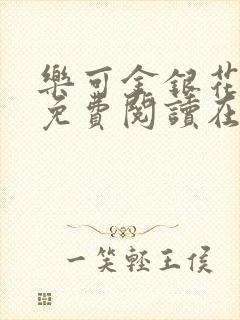 樂可金銀花
免費閱讀在
一笑輕王侯